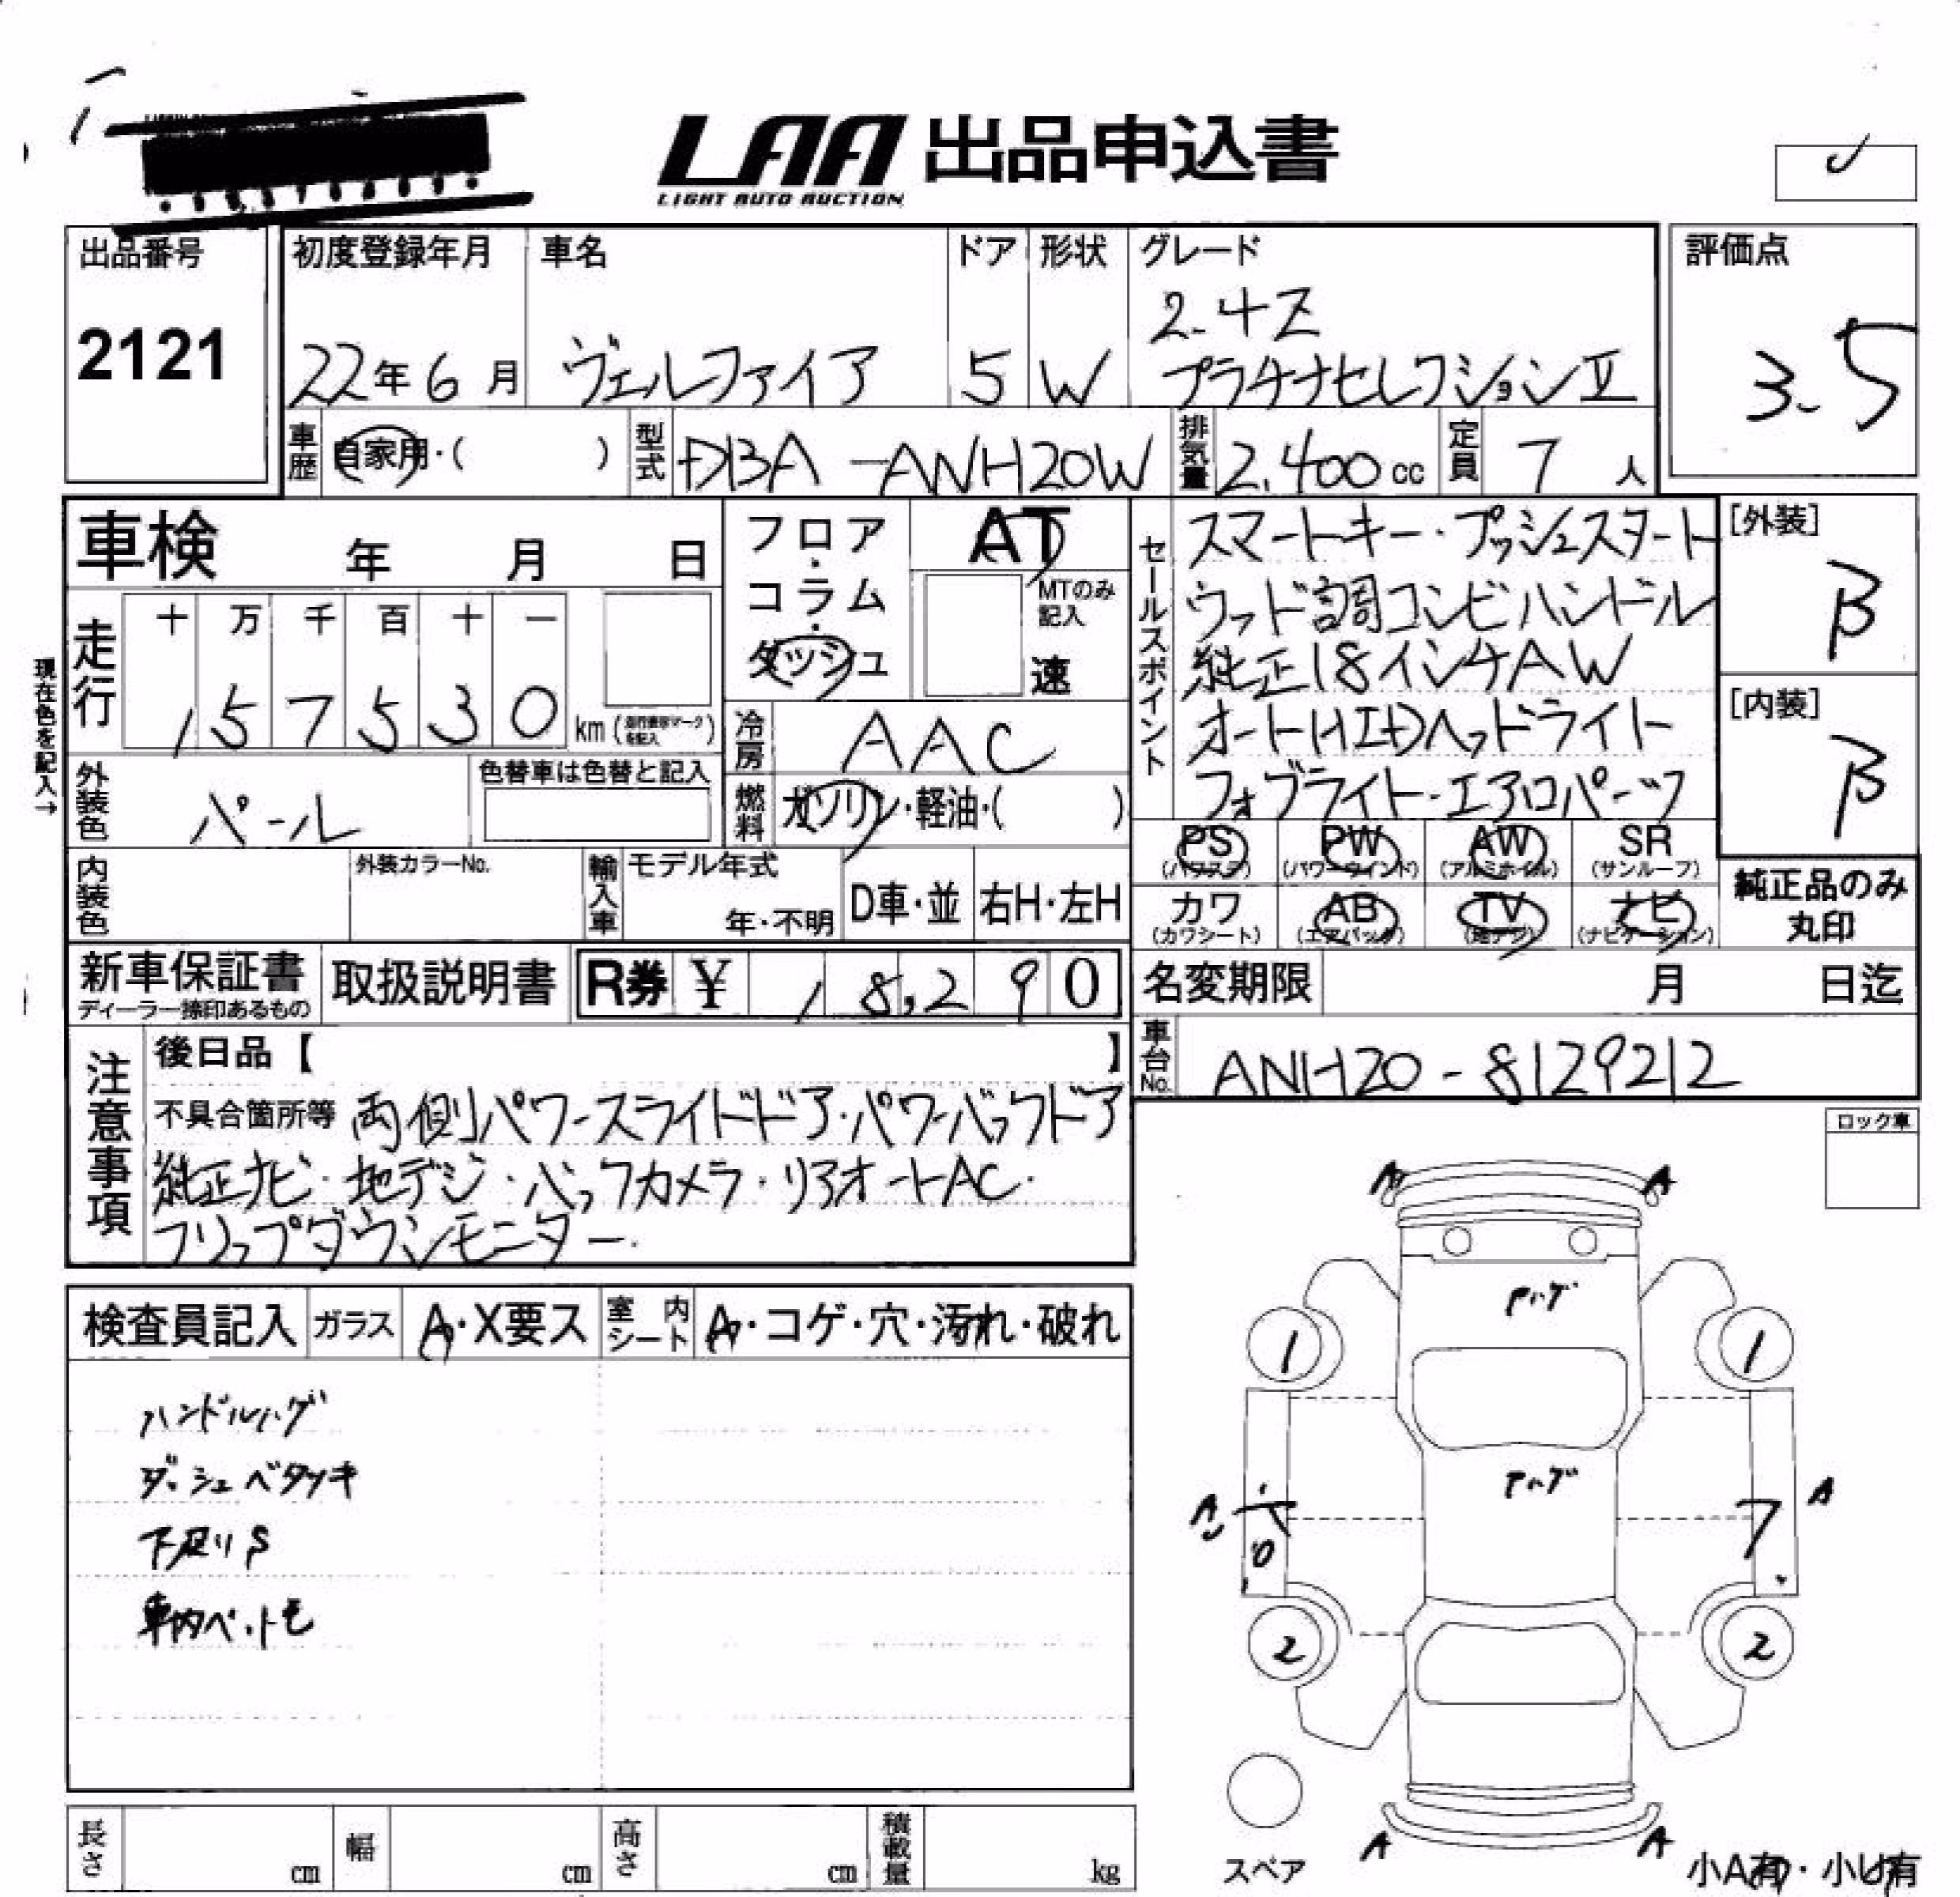 LAA 出品申込書
LIGHT AUTO AUCTION
出品番号
2121
初度登録年月
22年6月
車名
ヴェルファイア
ドア
5
形状
W
グレード
2.4Z
プラチナセレクションⅡ
評価点
3.5
車歴
自家用・( )
型式
DBA-ANH20W
排気量
2.400cc
定員
7人
車検 年 月 日
現在色を記入→
走行
十 万 千 百 十 一
1 5 7 5 3 0 km
フロア・コラム・ダッシュ
AT
MTのみ記入
速
冷房
AAC
燃料
ガソリン・軽油・( )
セールスポイント
スマートキー・プッシュスタート
ウッド調コンビハンドル
純正18インチAW
オートHIDヘッドライト
フォブライト・エアロパーツ
[外装]
B
[内装]
B
外装色
パール
色替車は色替と記入
内装色
外装カラーNo.
輸入車
モデル年式
年・不明
D車・並
右H・左H
PS (パワステ)
PW (パワーウインド)
AW (アルミホイル)
SR (サンルーフ)
カワ (カワシート)
AB (エアバック)
TV (地デジ)
ナビ (ナビゲーション)
純正品のみ
丸印
新車保証書
ディーラー捺印あるもの
取扱説明書
R券 ¥ 18,290
名変期限 月 日迄
車台No.
ANH20-8129212
注意事項
後日品【 】
不具合箇所等 両側パワースライドドア・パワーバックドア
純正ナビ・地デジ・バックカメラ・リアオートAC・
フリップダウンモニター・
ロック車
検査員記入
ガラス
A・X要ス
室内シート
A・コゲ・穴・汚れ・破れ
ハンドルハゲ
ダッシュベタツキ
下廻りS
車内ペット毛
A A
Pハゲ
1 1
Pハゲ
A A
2 2
A A
スペア
小A有・小U有
長さ cm
幅 cm
高さ cm
積載量 kg